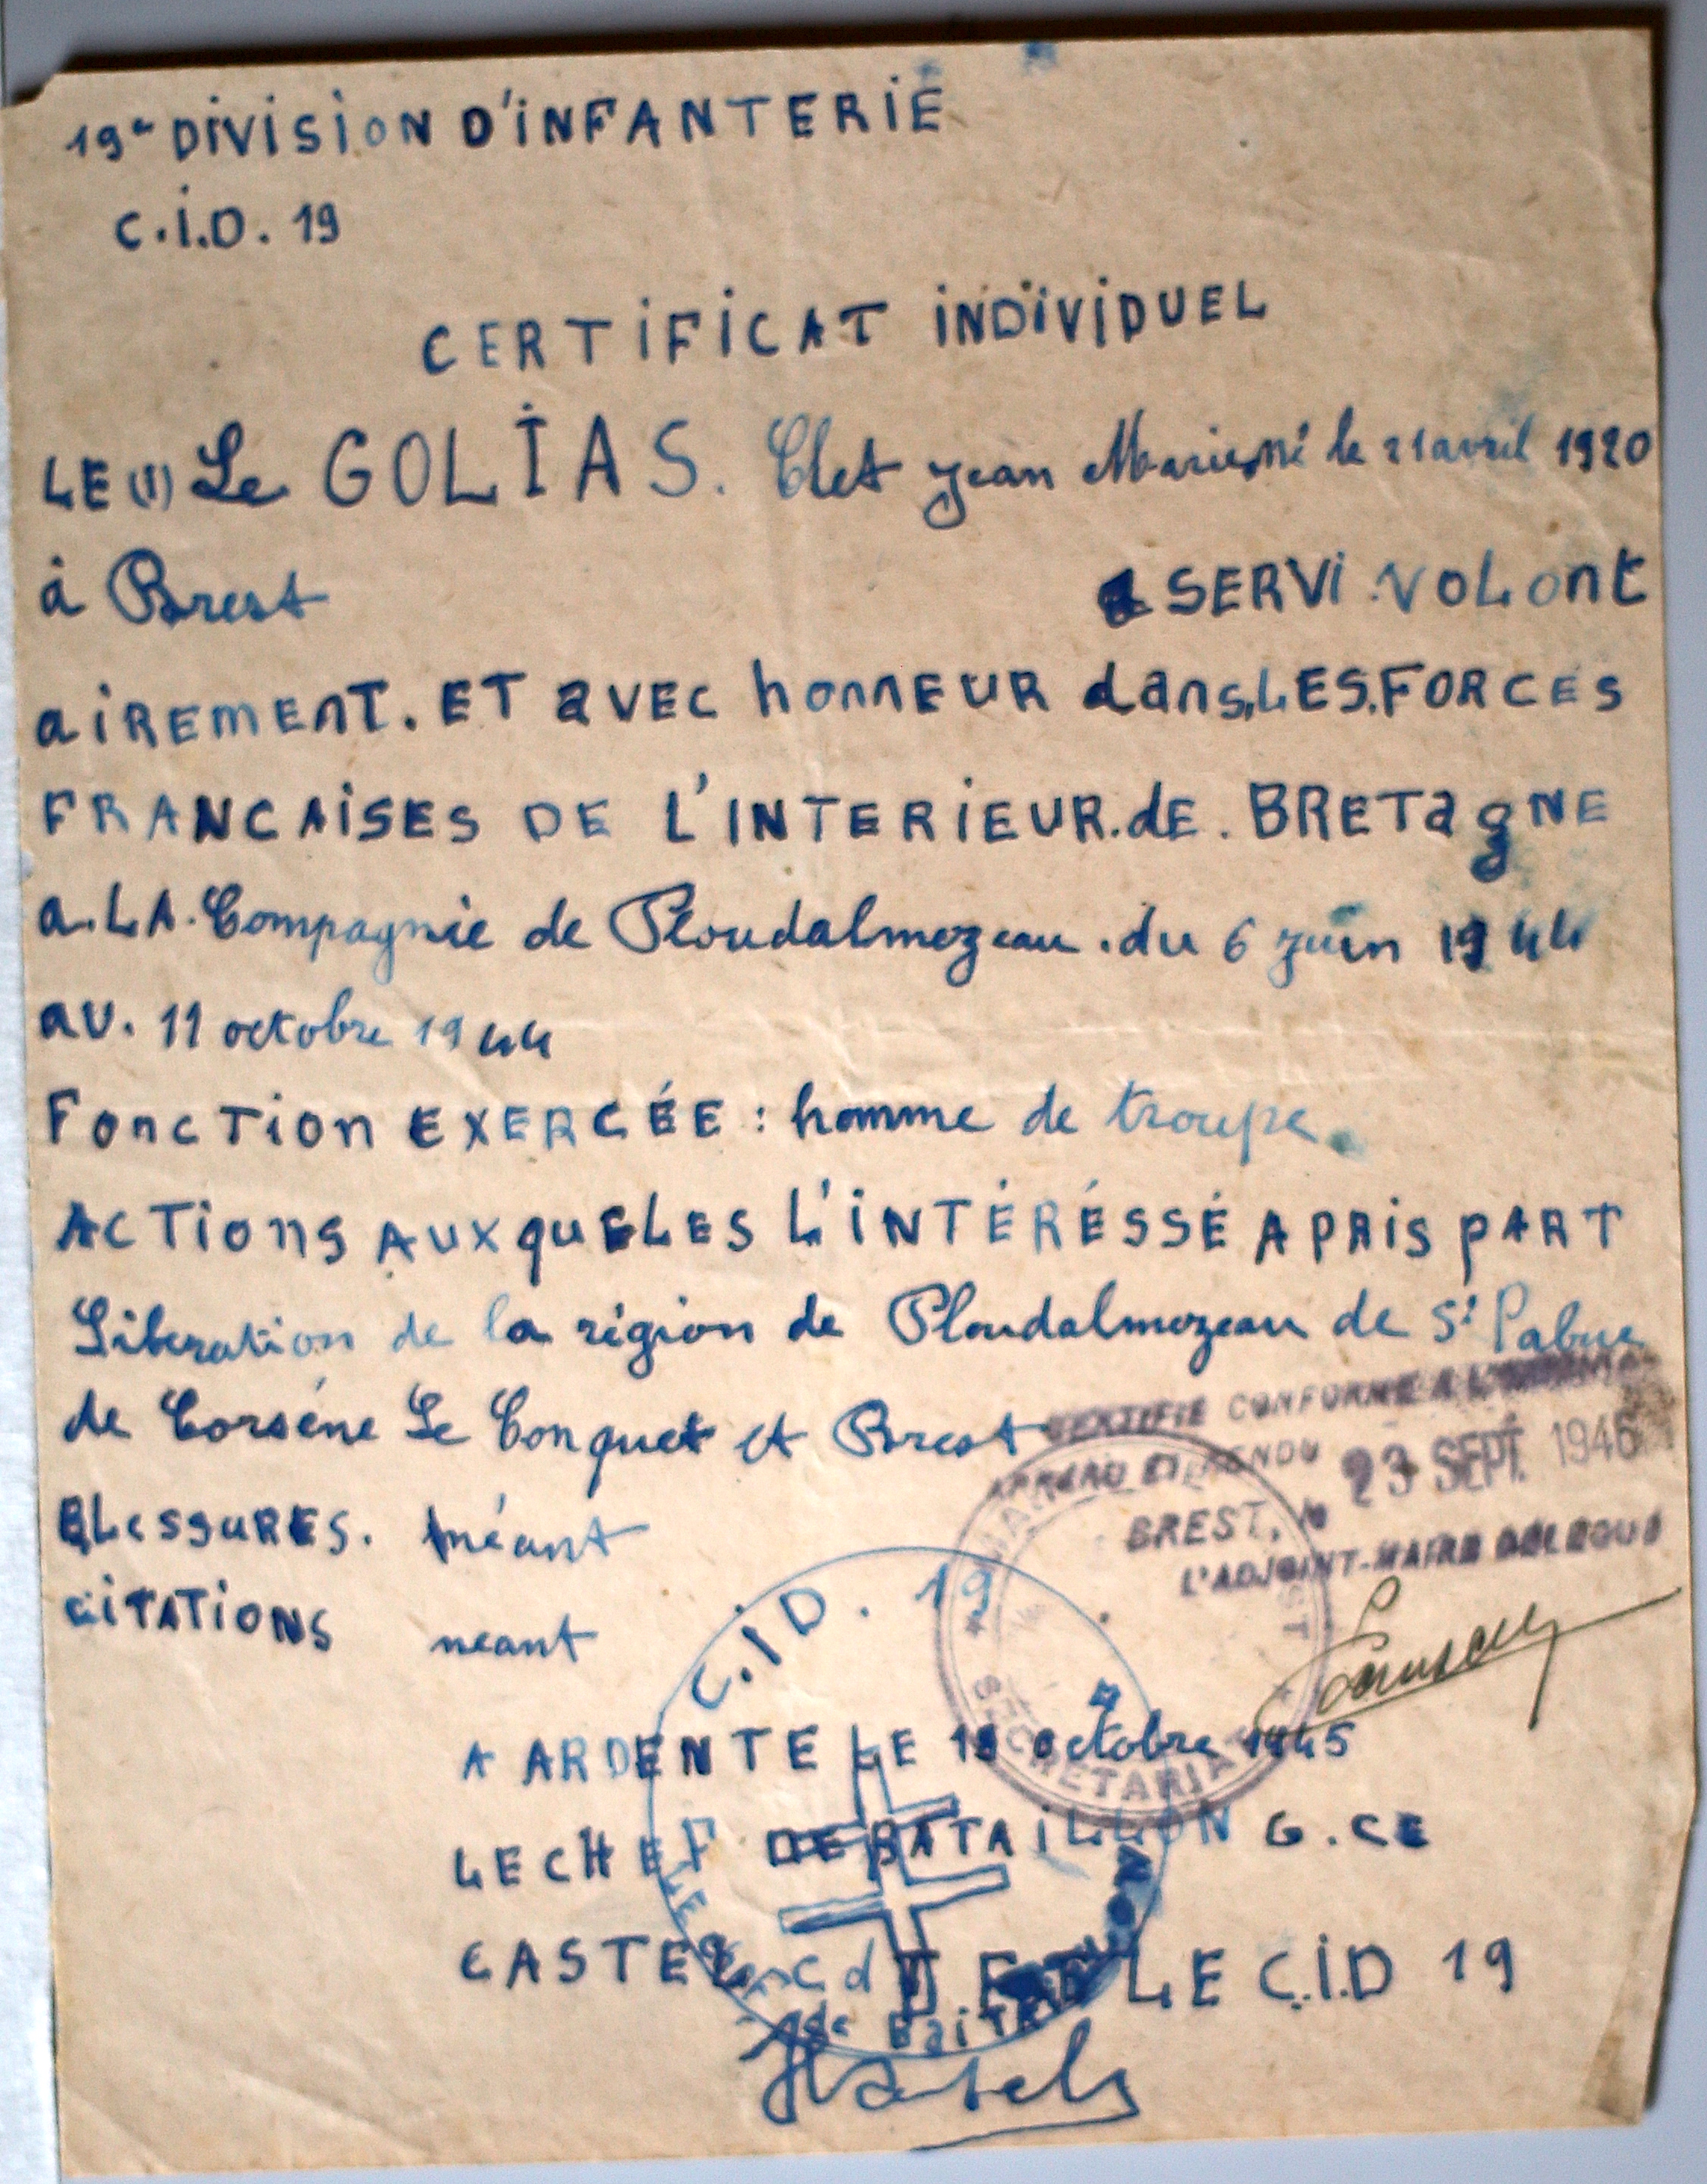 19e DIVISION D'INFANTERIE
C.I.D. 19
CERTIFICAT INDIVIDUEL
LE (1) Le GOLIAS. Clet Jean Marie né le 21 avril 1920
à Brest a SERVI VOLONT
AIREMENT. ET AVEC HONNEUR DANS.LES.FORCES
FRANCAISES DE L'INTERIEUR.DE.BRETAGNE
A.LA.Compagnie de Ploudalmezeau.du 6 juin 1944
AU. 11 octobre 1944
FONCTION EXERCÉE : homme de troupe.
ACTIONS AUXQUELES L'INTÉRÉSSÉ A PRIS PART
Libération de la région de Ploudalmezeau de St Pabue
de Corséne Le Conquet et Brest
BLESSURES. néant
CITATIONS neant
CERTIFIE CONFORME A L'ORIGINAL
APPRENO ET RENDU
BREST, le 23 SEPT. 1946
L'ADJOINT-MAIRE DELEGUE
SECRETARIAT
C.I.D. 19
A ARDENTE LE octobre 1945
LE CHEF DE BATAILLON G.CE
CASTEL Cdt LE C.I.D 19